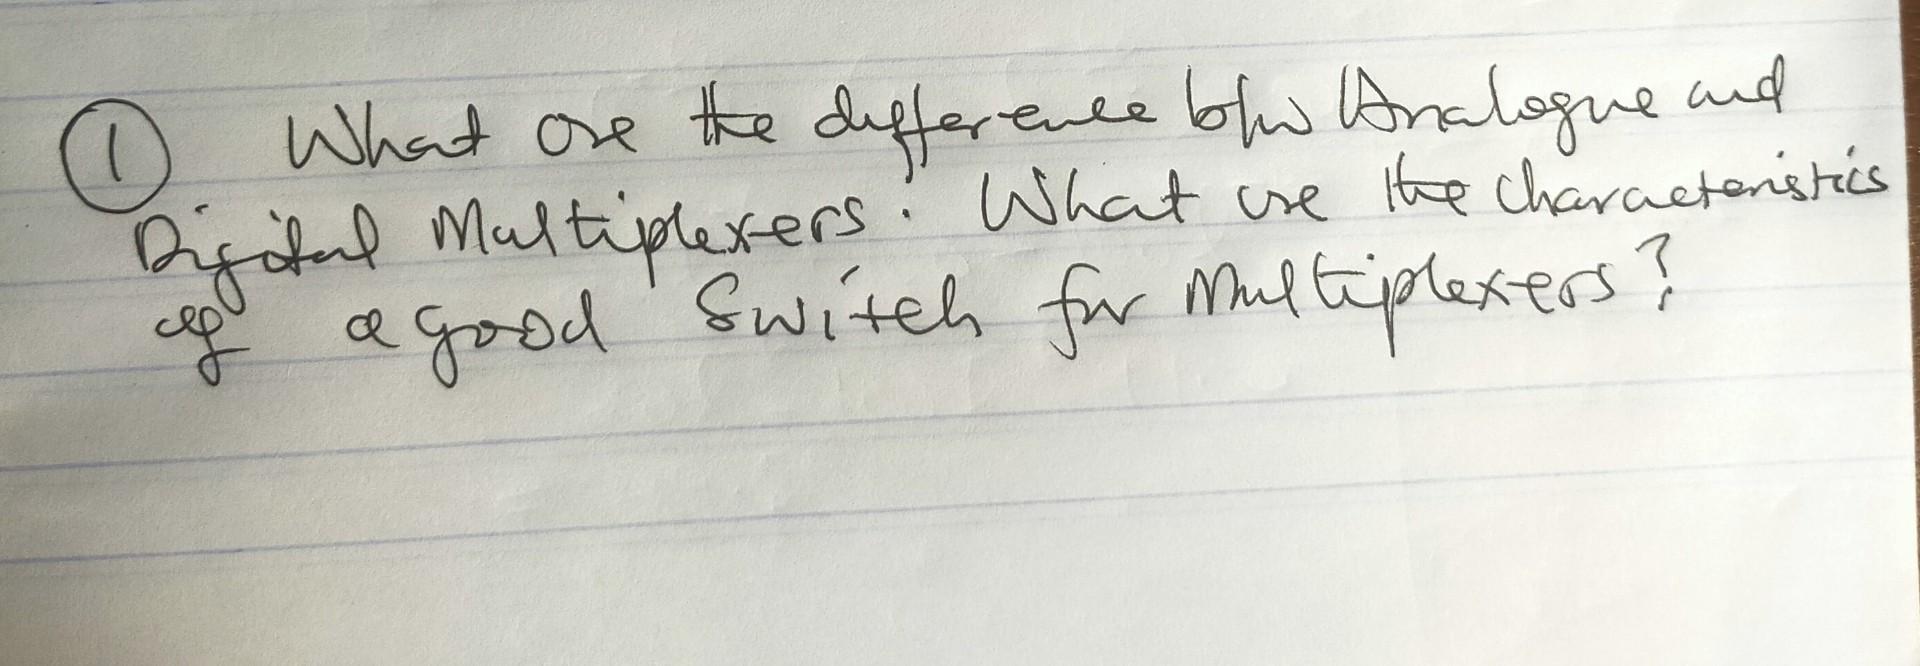 ① What are the difference b/w Analogue and
Digital Multiplexers. What are the Characteristics
of a good Switch for Multiplexers?